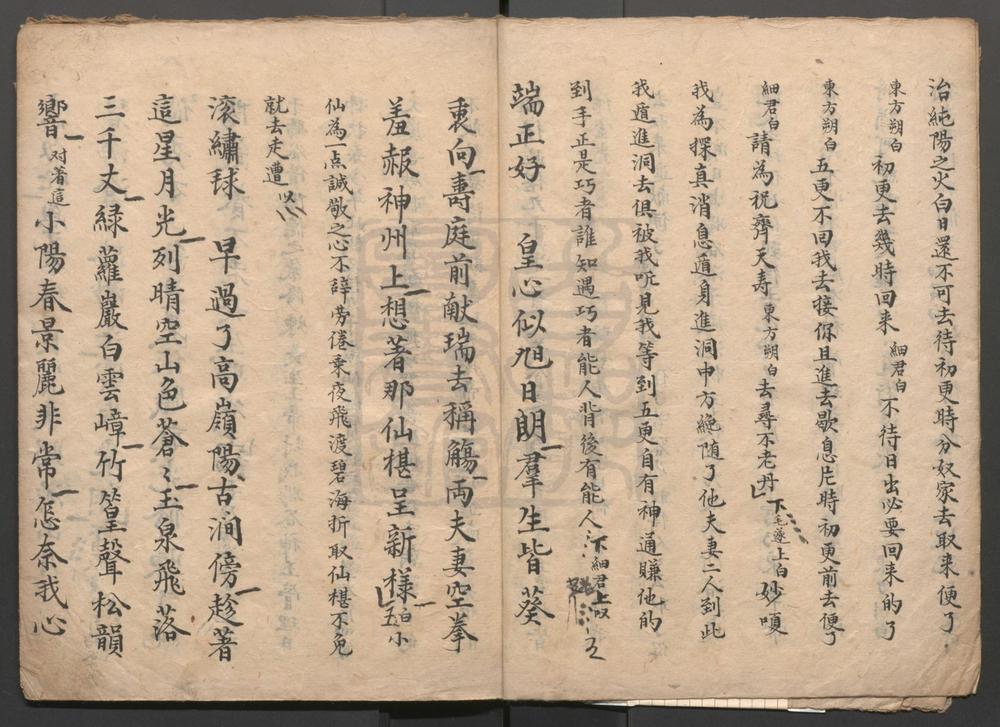 治純陽之火白日還不可去待初更時分奴家去取来便了
東方朔白 初更去幾時回来 細君白 不待日出必要回来的了
東方朔白 五更不回我去接你且進去歇息片時初更前去便了
細君白 請為祝齊天寿 東方朔白 去尋不老丹 下毛遂上白 妙嗄
我為探真消息遁身進洞中方纔随了他夫妻二人到此
我遁進洞去俱被我听見我等到五更自有神通賺他的
到手正是巧者誰知遇巧者能人背後有能人 下細君上
端正好 皇心似旭日朗羣生皆葵
衷向壽庭前献瑞去稱觴両夫妻空拳
羞赧神州上想著那仙椹呈新様 白 小
仙為一点誠敬之心不辞劳倦乗夜飛渡碧海折取仙椹不免
就去走遭
滚繡球 早過了高嶺陽古澗傍趁著
這星月光列晴空山色蒼〻玉泉飛落
三千丈緑蘿巖白雲嶂竹篁聲松韻
響 对著這 小陽春景麗非常怎奈我心